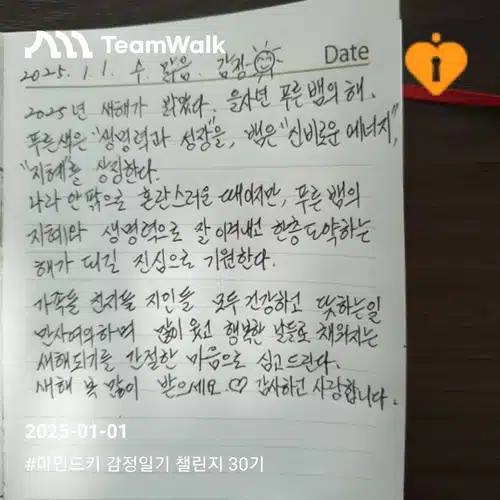 TeamWalk
Date
2025. 1. 1. 수. 맑음. 감정
2025년 새해가 밝았다. 을사년 푸른 뱀의 해.
푸른색은 "생명력과 성장"을, 뱀은 "신비로운 에너지",
"지혜"를 상징한다.
나라 안팎으로 혼란스러운 때이지만, 푸른 뱀의
지혜와 생명력으로 잘 이겨내고 한층 도약하는
해가 되길 진심으로 기원한다.
가족들 친지들 지인들 모두 건강하고 맞하는일
만사여의하며 많이 웃고 행복한 날들로 채워지는
새해되기를 간절한 마음으로 심고드린다.
새해 복 많이 받으세요.♡ 감사하고 사랑합니다.
2025-01-01
#마인드키 감정일기 챌린지 30기